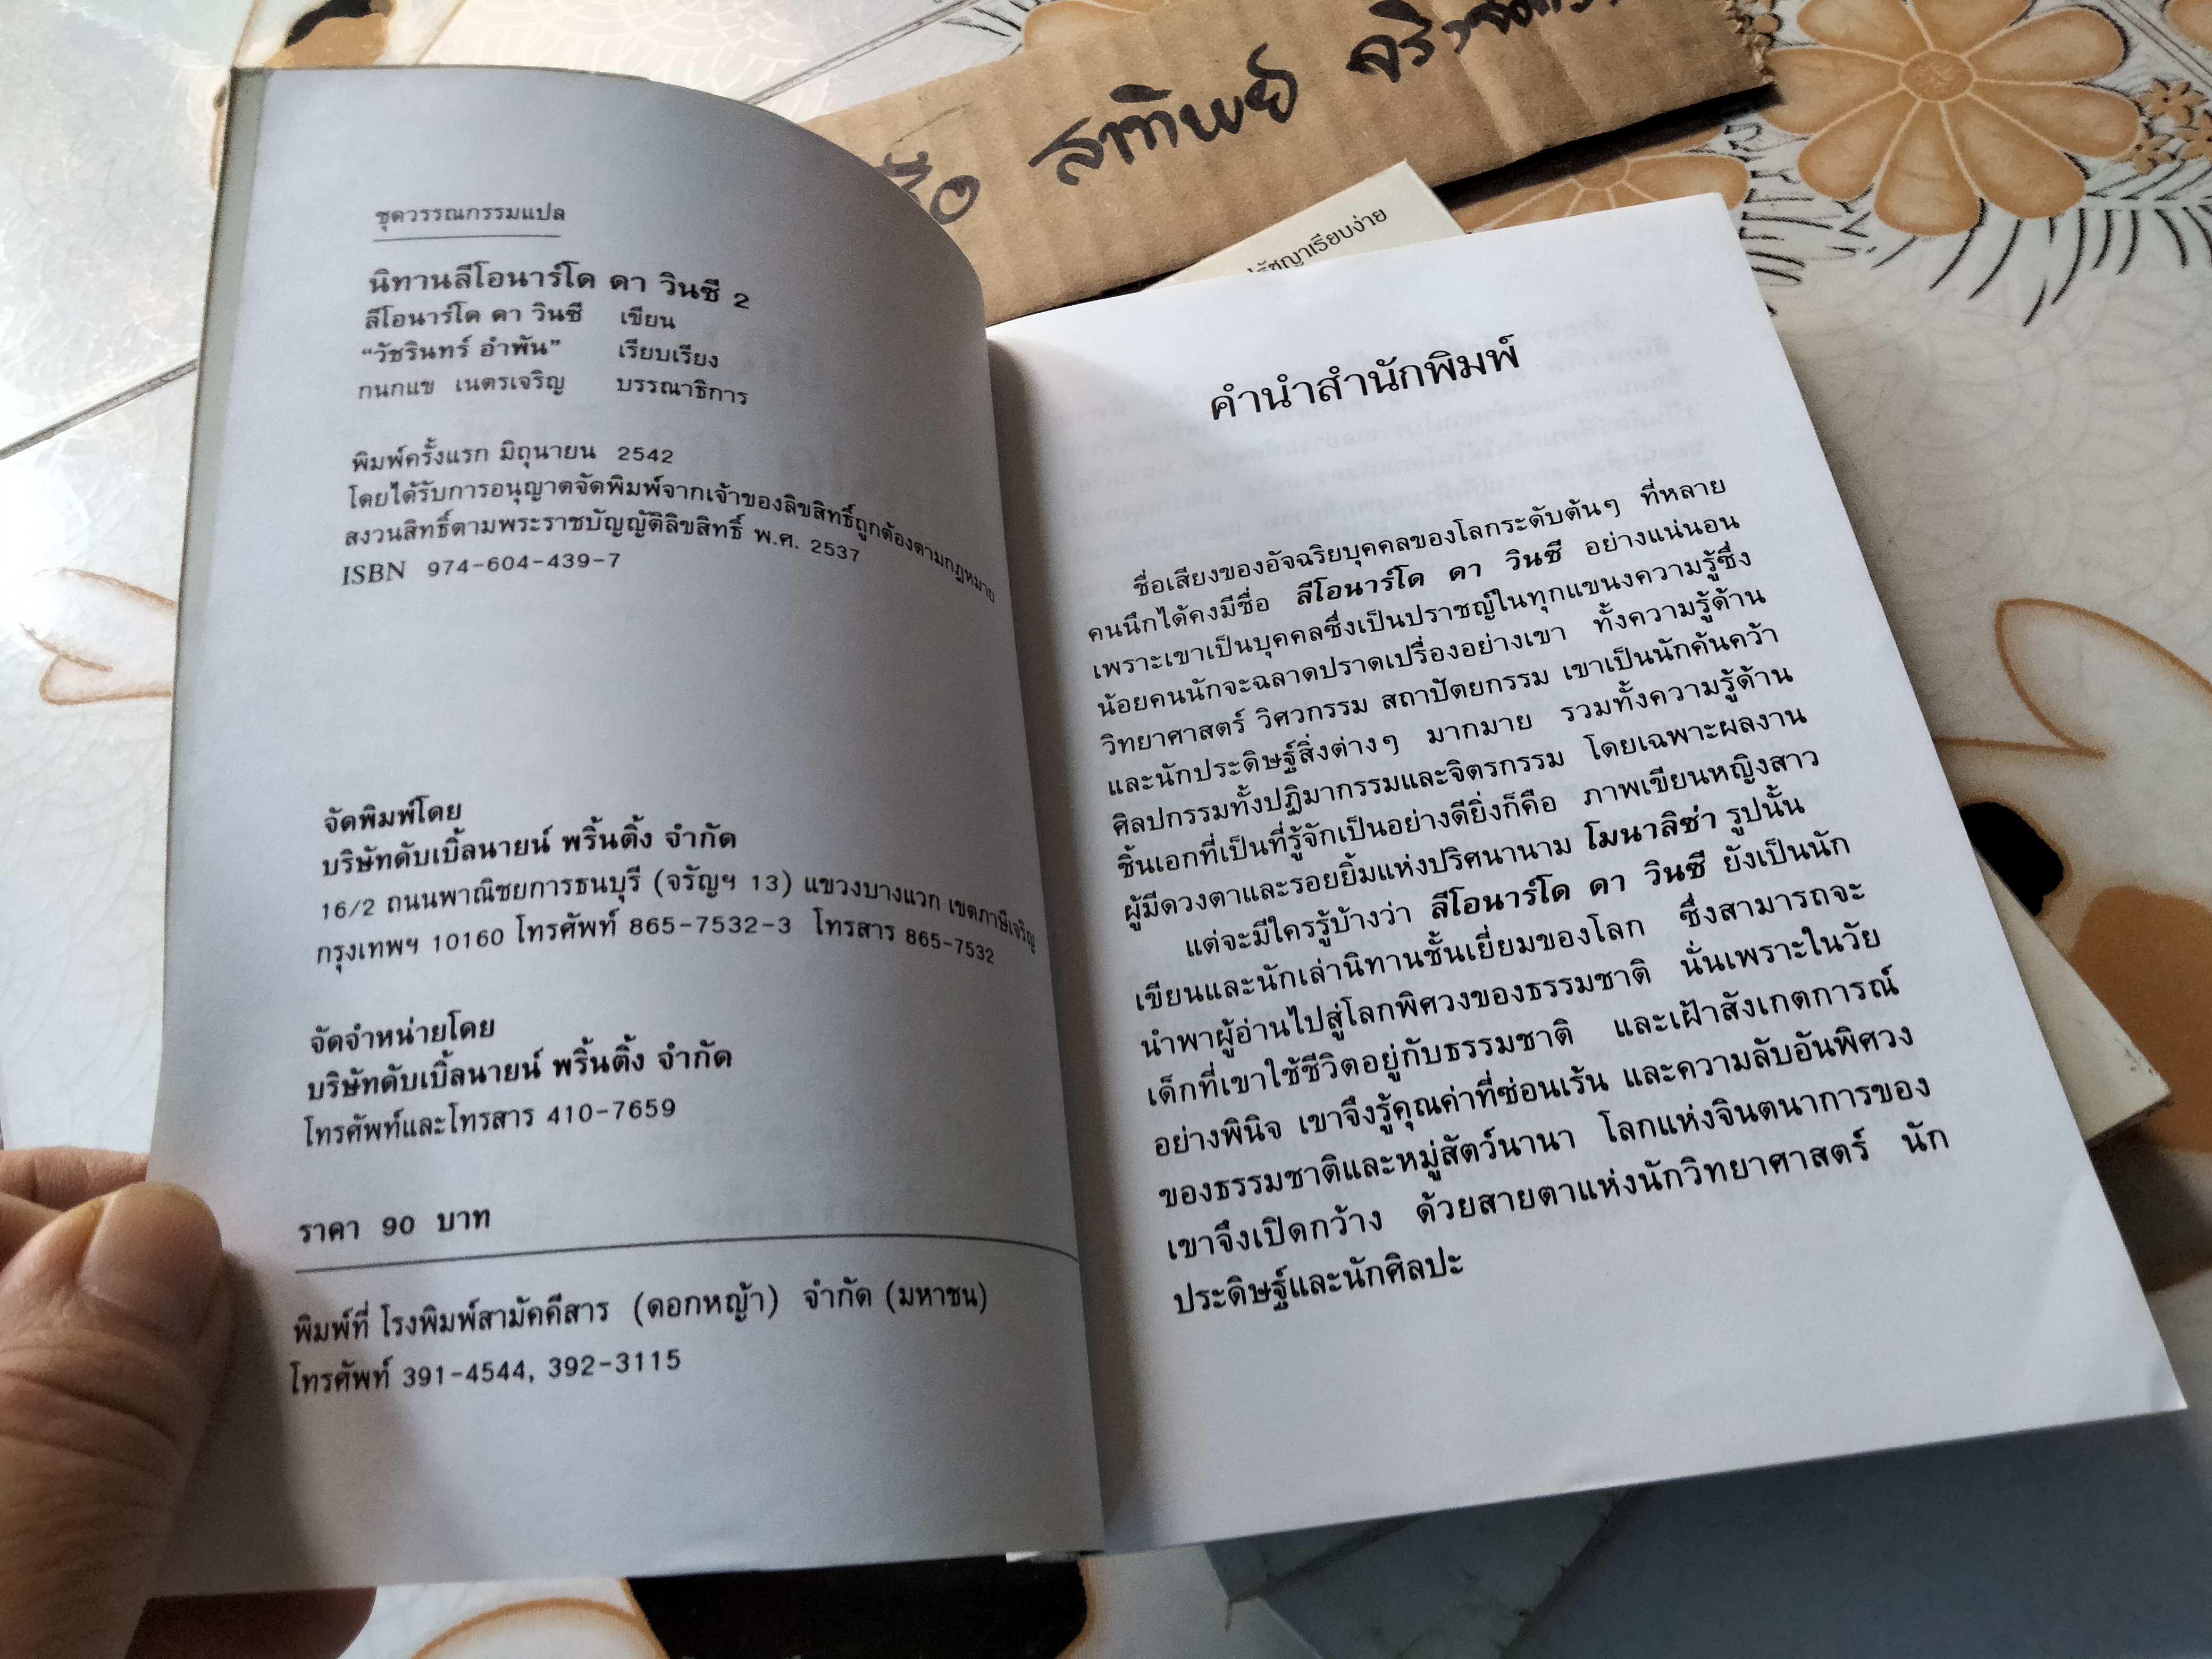 สาทิพย์
รัชญาเรียบง่าย
ชุดวรรณกรรมแปล
นิทานลีโอนาร์โด ดา วินซี 2
ลีโอนาร์โด ดา วินซี เขียน
“วัชรินทร์ อำพัน” เรียบเรียง
กนกแข เนตรเจริญ บรรณาธิการ
พิมพ์ครั้งแรก มิถุนายน 2542
โดยได้รับการอนุญาตจัดพิมพ์จากเจ้าของลิขสิทธิ์ถูกต้องตามกฎหมาย
สงวนสิทธิ์ตามพระราชบัญญัติลิขสิทธิ์ พ.ศ. 2537
ISBN 974-604-439-7
จัดพิมพ์โดย
บริษัทดับเบิ้ลนายน์ พริ้นติ้ง จำกัด
16/2 ถนนพาณิชยการธนบุรี (จรัญฯ 13) แขวงบางแวก เขตภาษีเจริญ
กรุงเทพฯ 10160 โทรศัพท์ 865-7532-3 โทรสาร 865-7532
จัดจำหน่ายโดย
บริษัทดับเบิ้ลนายน์ พริ้นติ้ง จำกัด
โทรศัพท์และโทรสาร 410-7659
ราคา 90 บาท
พิมพ์ที่ โรงพิมพ์สามัคคีสาร (ดอกหญ้า) จำกัด (มหาชน)
โทรศัพท์ 391-4544, 392-3115
คำนำสำนักพิมพ์
ชื่อเสียงของอัจฉริยบุคคลของโลกระดับต้นๆ ที่หลาย
คนนึกได้คงมีชื่อ ลีโอนาร์โด ดา วินซี อย่างแน่นอน
เพราะเขาเป็นบุคคลซึ่งเป็นปราชญ์ในทุกแขนงความรู้ซึ่ง
น้อยคนนักจะฉลาดปราดเปรื่องอย่างเขา ทั้งความรู้ด้าน
วิทยาศาสตร์ วิศวกรรม สถาปัตยกรรม เขาเป็นนักค้นคว้า
และนักประดิษฐ์สิ่งต่างๆ มากมาย รวมทั้งความรู้ด้าน
ศิลปกรรมทั้งปฏิมากรรมและจิตรกรรม โดยเฉพาะผลงาน
ชิ้นเอกที่เป็นที่รู้จักเป็นอย่างดียิ่งก็คือ ภาพเขียนหญิงสาว
ผู้มีดวงตาและรอยยิ้มแห่งปริศนานาม โมนาลิซ่า รูปนั้น
แต่จะมีใครรู้บ้างว่า ลีโอนาร์โด ดา วินซี ยังเป็นนัก
เขียนและนักเล่านิทานชั้นเยี่ยมของโลก ซึ่งสามารถจะ
นำพาผู้อ่านไปสู่โลกพิศวงของธรรมชาติ นั่นเพราะในวัย
เด็กที่เขาใช้ชีวิตอยู่กับธรรมชาติ และเฝ้าสังเกตการณ์
อย่างพินิจ เขาจึงรู้คุณค่าที่ซ่อนเร้น และความลับอันพิศวง
ของธรรมชาติและหมู่สัตว์นานา โลกแห่งจินตนาการของ
เขาจึงเปิดกว้าง ด้วยสายตาแห่งนักวิทยาศาสตร์ นัก
ประดิษฐ์และนักศิลปะ